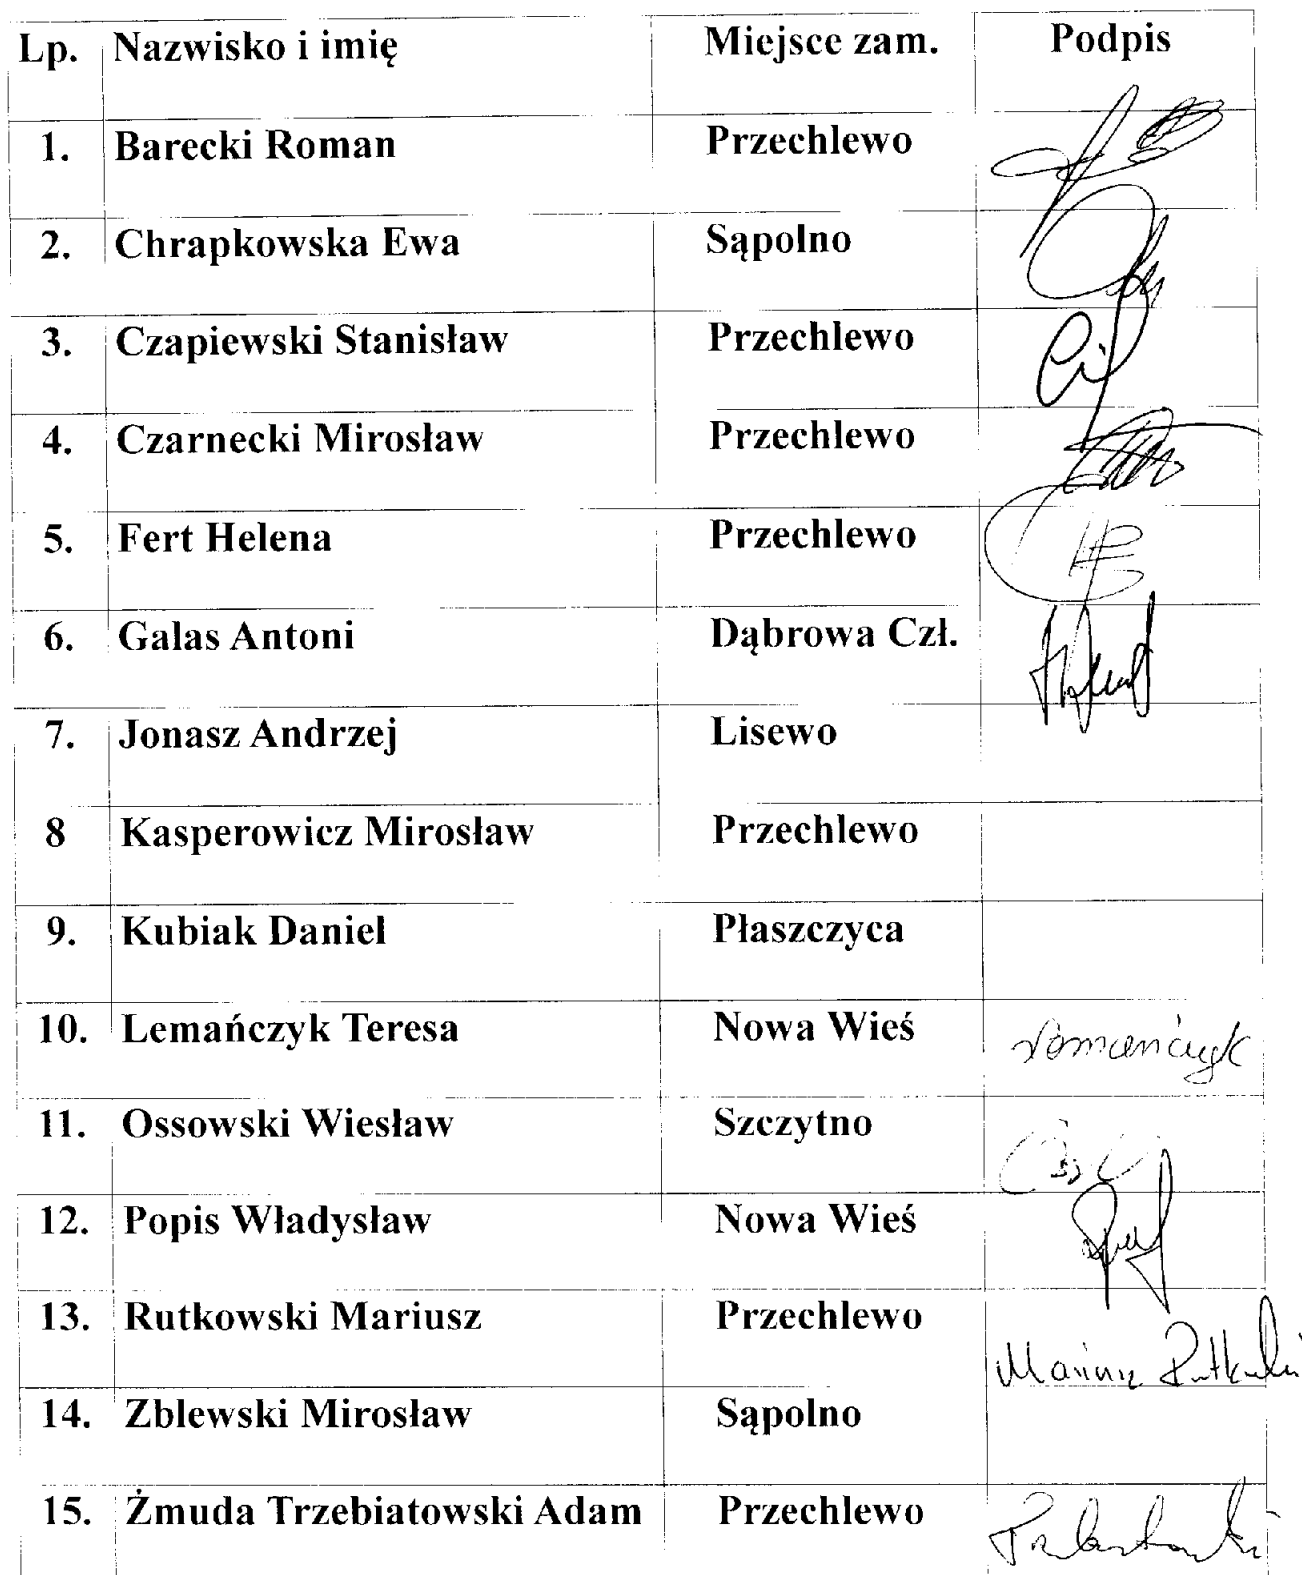 Lp. Nazwisko i imię Miejsce zam. Podpis
1. Barecki Roman Przechlewo
2. Chrapkowska Ewa Sąpolno
3. Czapiewski Stanisław Przechlewo
4. Czarnecki Mirosław Przechlewo
5. Fert Helena Przechlewo
6. Galas Antoni Dąbrowa Czł.
7. Jonasz Andrzej Lisewo
8 Kasperowicz Mirosław Przechlewo
9. Kubiak Daniel Płaszczyca
10. Lemańczyk Teresa Nowa Wieś
11. Ossowski Wiesław Szczytno
12. Popis Władysław Nowa Wieś
13. Rutkowski Mariusz Przechlewo
14. Zblewski Mirosław Sąpolno
15. Żmuda Trzebiatowski Adam Przechlewo